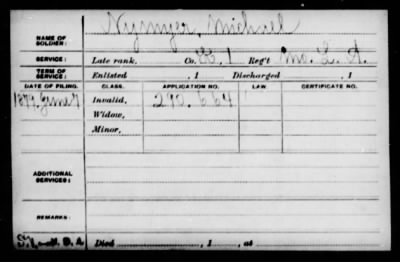 NAME OF SOLDIER: Nysmyer, Michael
SERVICE: Late rank, Co. 1 Reg't Mo. L. A.
TERM OF SERVICE: Enlisted , 1 Discharged , 1
DATE OF FILING. CLASS. APPLICATION NO. LAW. CERTIFICATE NO.
1879, June Invalid, 290.664
Widow,
Minor,
ADDITIONAL SERVICES:
REMARKS:
Died , 1 , at